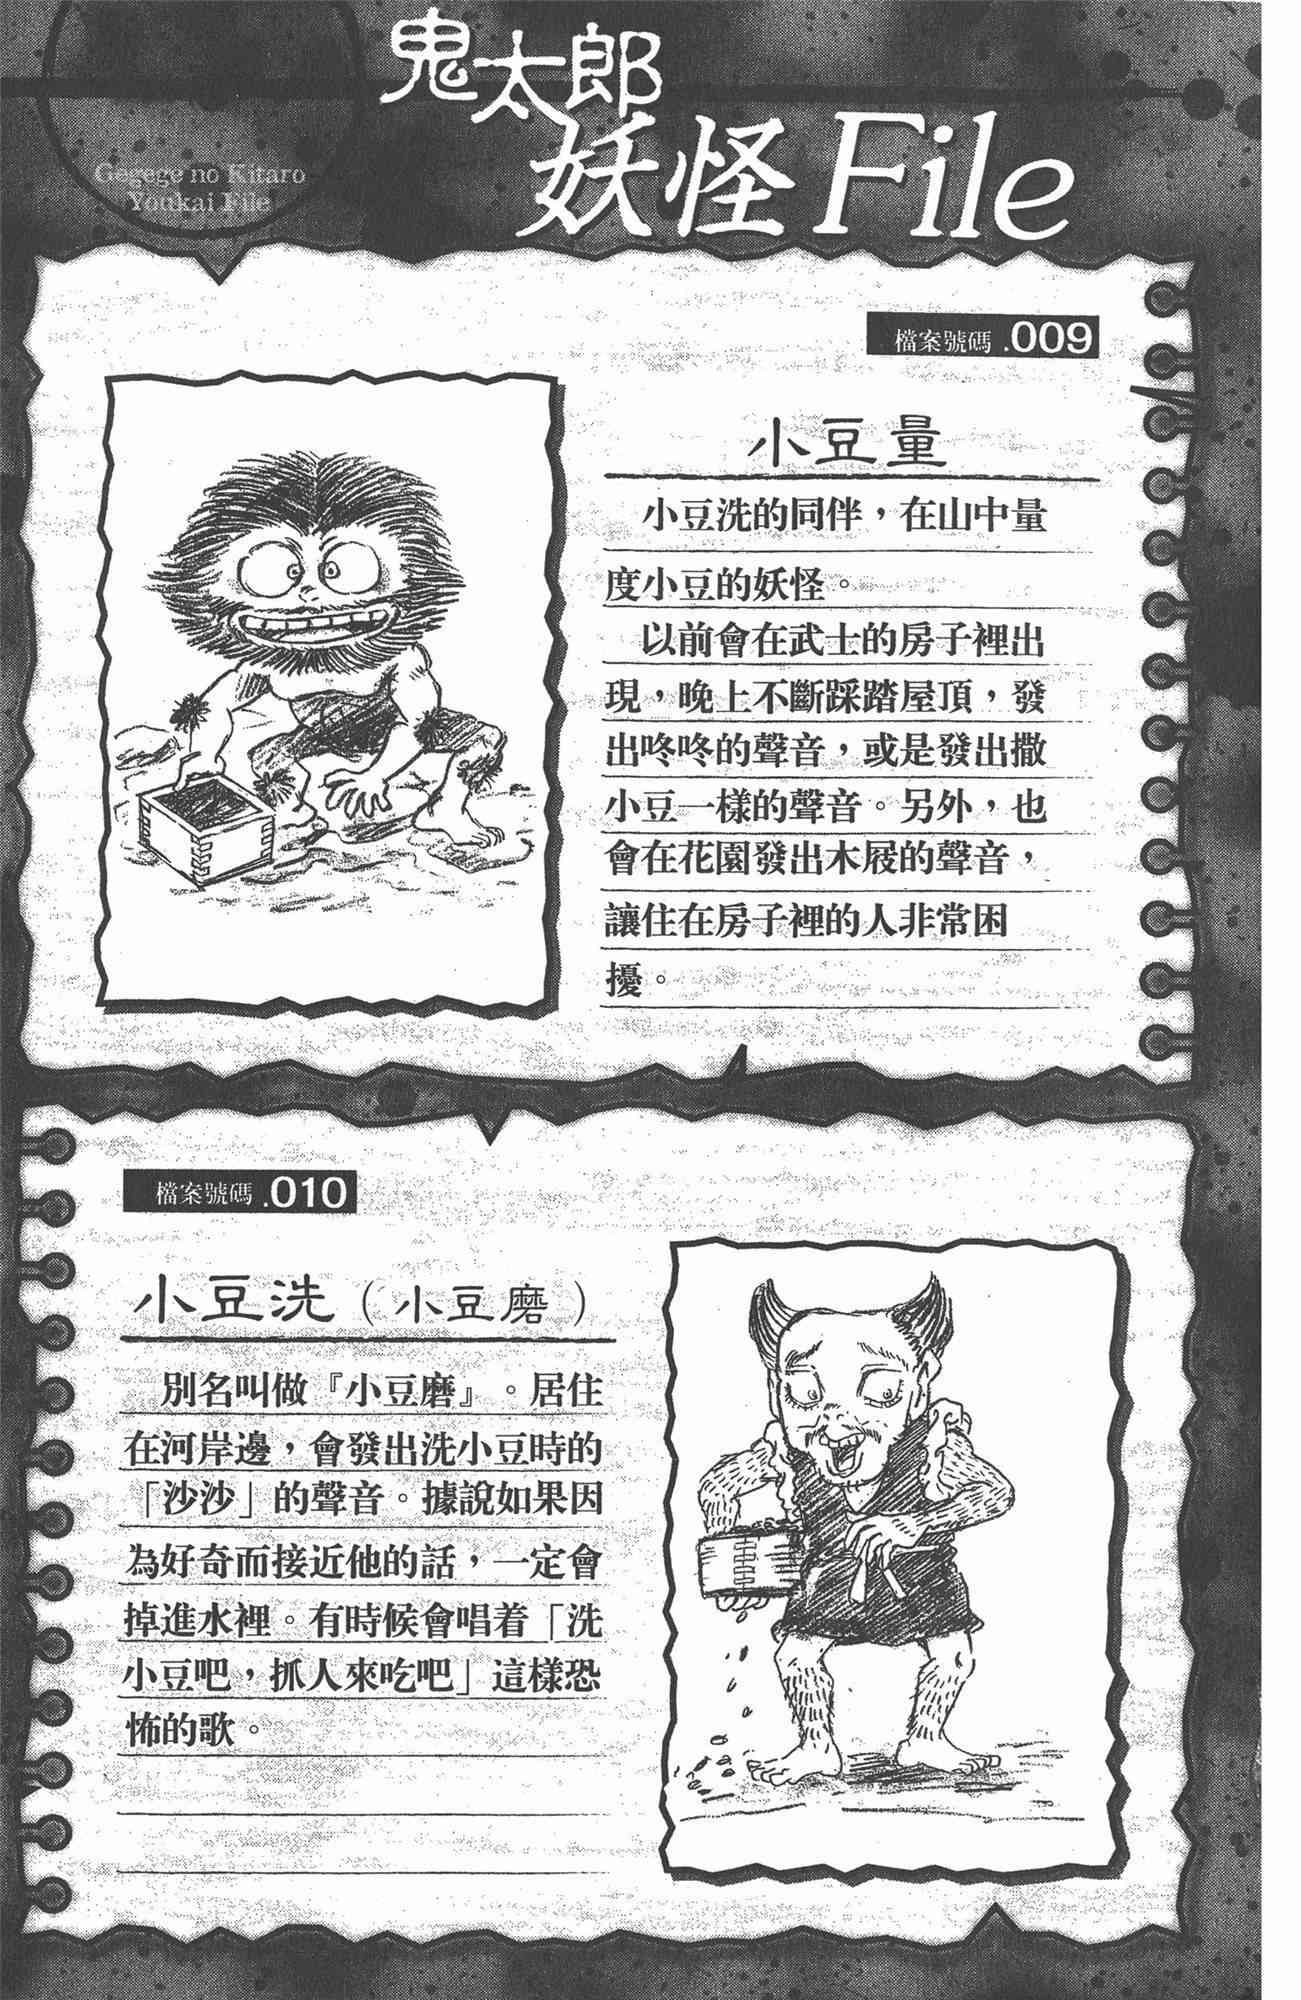 鬼太郎
妖怪File
Gegege no Kitaro
Youkai File
檔案號碼.009
小豆量
小豆洗的同伴，在山中量
度小豆的妖怪。
以前會在武士的房子裡出
現，晚上不斷踩踏屋頂，發
出咚咚的聲音，或是發出撒
小豆一樣的聲音。另外，也
會在花園發出木屐的聲音，
讓住在房子裡的人非常困
擾。
檔案號碼.010
小豆洗（小豆磨）
別名叫做『小豆磨』。居住
在河岸邊，會發出洗小豆時的
「沙沙」的聲音。據說如果因
為好奇而接近他的話，一定會
掉進水裡。有時候會唱着「洗
小豆吧，抓人來吃吧」這樣恐
怖的歌。